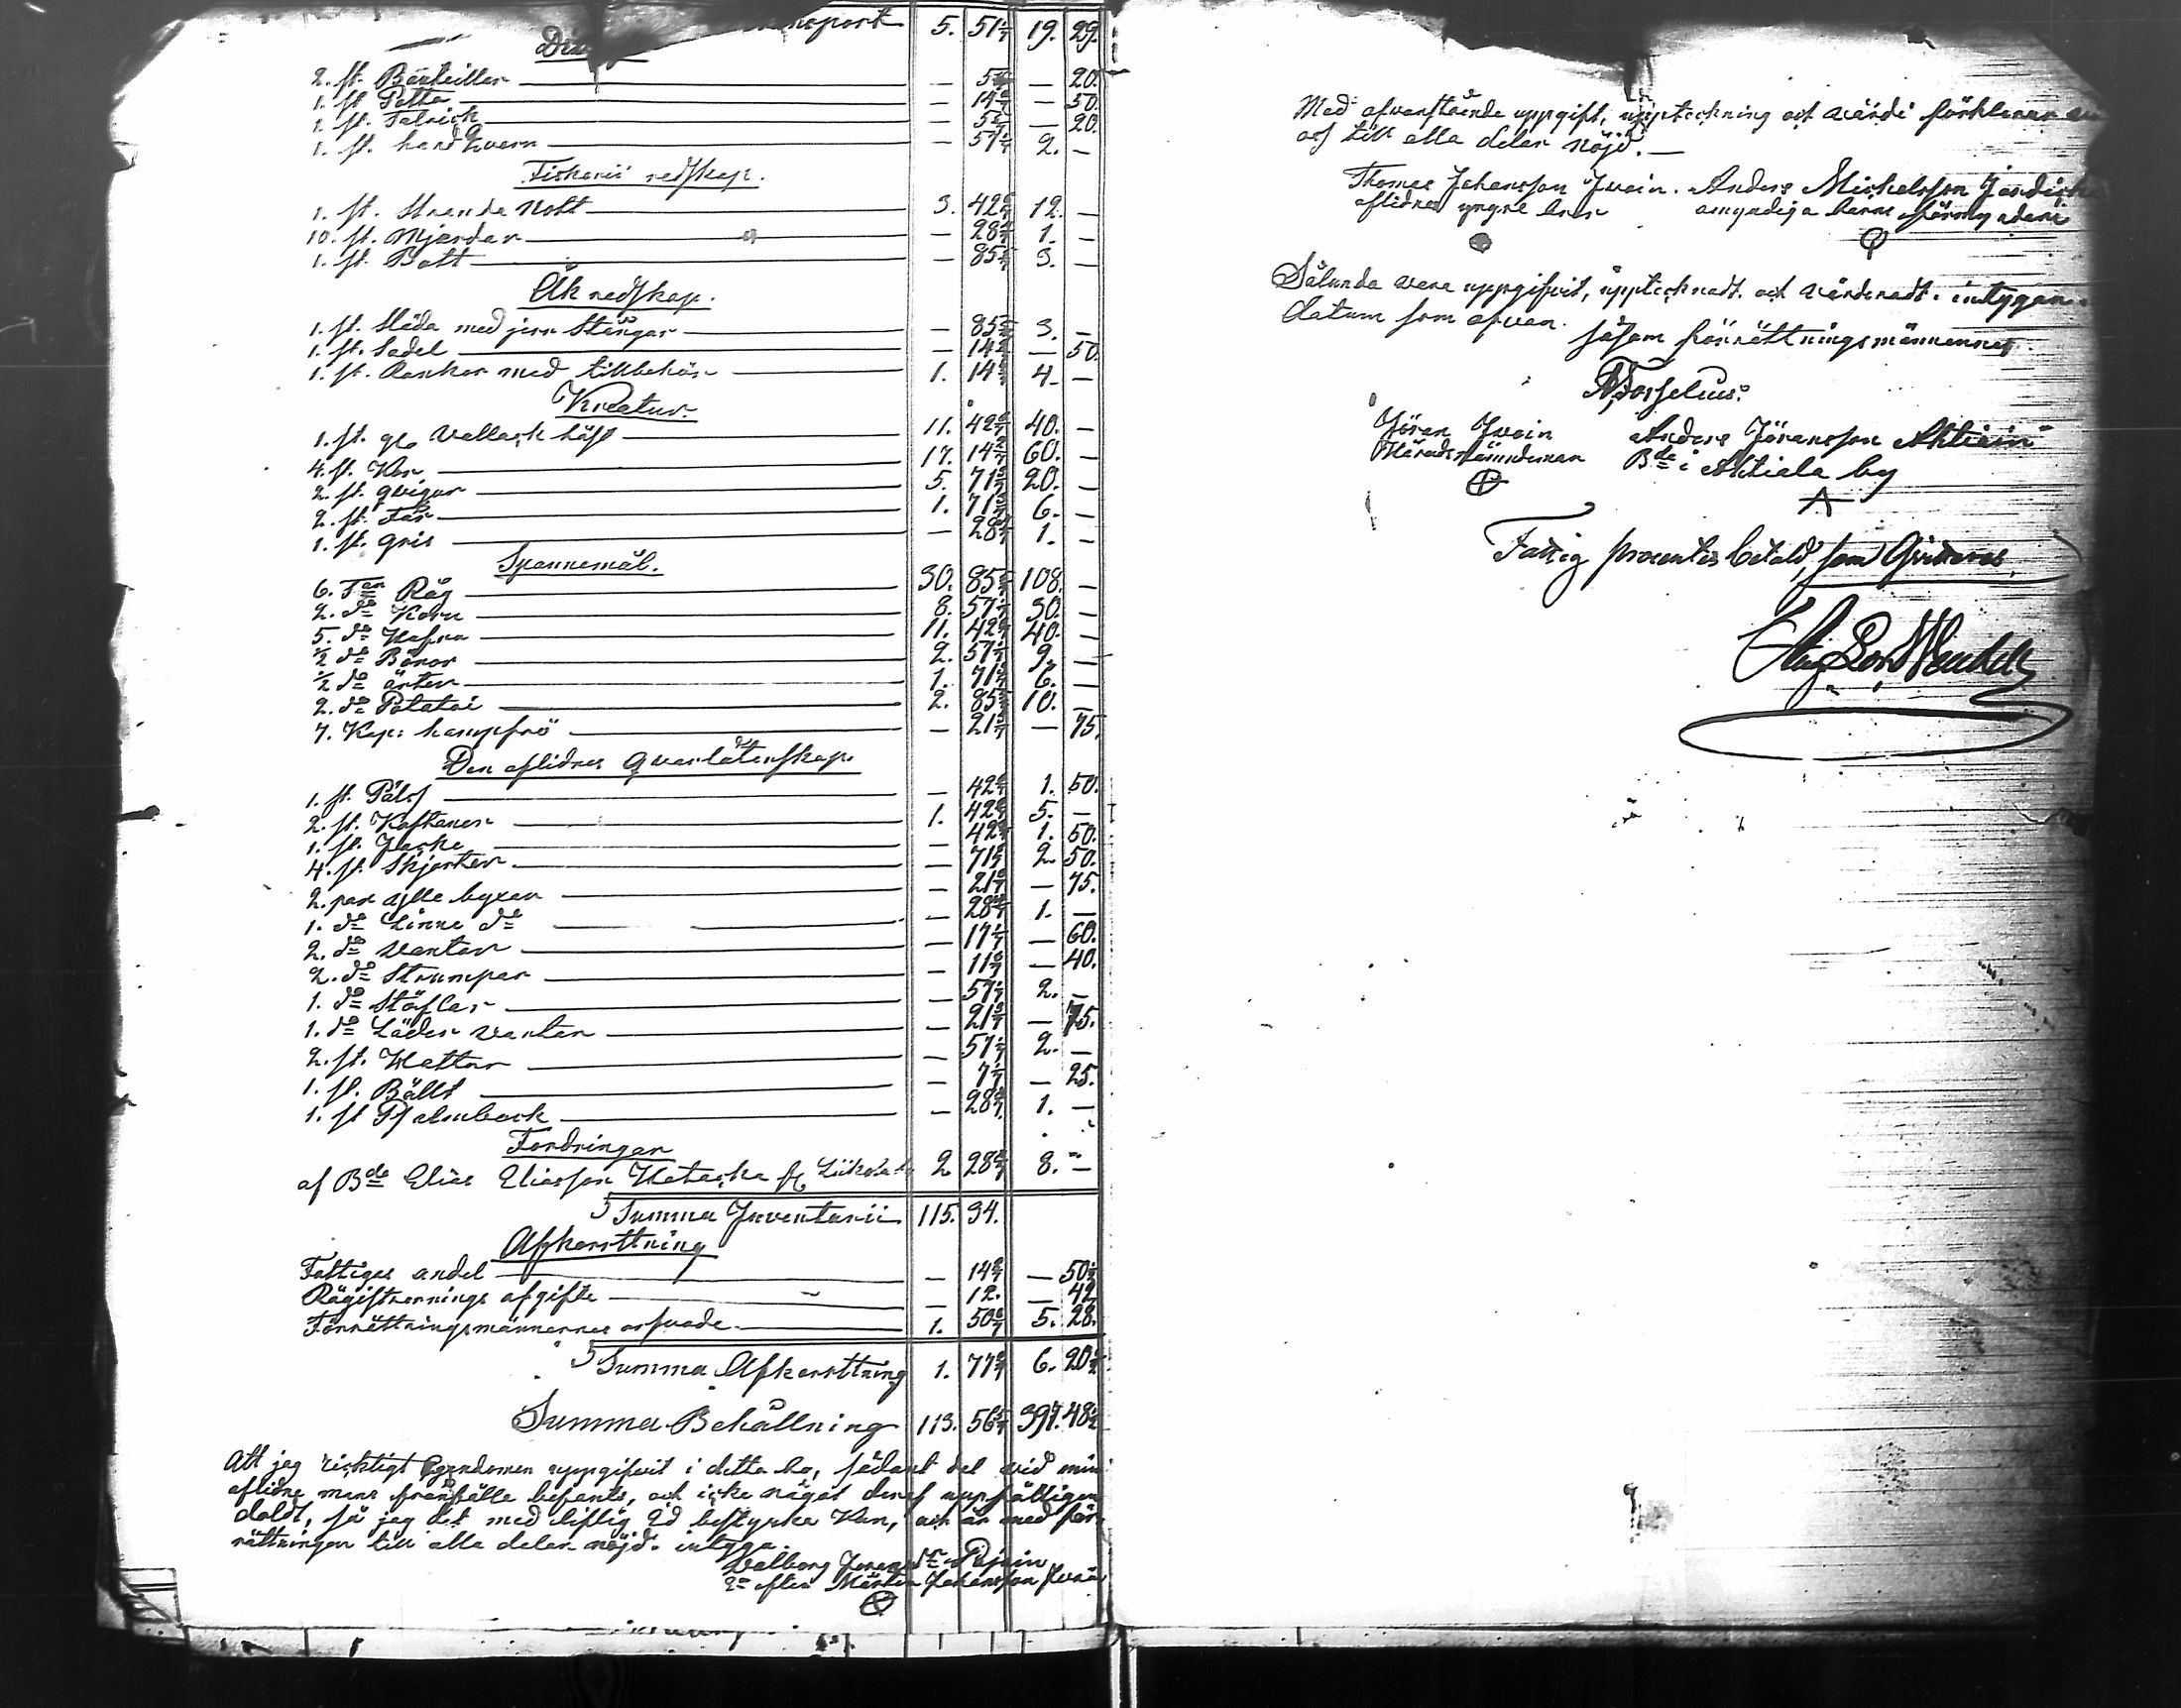 Transport 5. 51 3/7 19. 29.
2. st. Bouteiller — 5 5/7 — 20.
1. st. Potta — 14 2/7 — 50.
1. st. Talrick — 5 5/7 — 20.
1. st. handqvarn — 57 1/7 2. —
Fiskerii redskap.
1. st. Strandа Nott 3. 42 6/7 12. —
10. st. Mjerdar — 28 4/7 1. —
1. st. Bått — 85 5/7 3. —
Åk redskap.
1. st. Släda med jern Stänger — 85 5/7 3. —
1. st. Sadel — 14 2/7 — 50.
1. st. Rankor med tillbehör 1. 14 2/7 4. —
Kreatur.
1. st. gl. Vallack häst 11. 42 6/7 40. —
4. st. Kor 17. 14 2/7 60. —
2. st. qvigor 5. 71 3/7 20. —
2. st. Får 1. 71 3/7 6. —
1. st. gris — 28 4/7 1. —
Spannemål.
6. Tnr Råg 30. 85 5/7 108. —
2. do Korn 8. 57 1/7 30. —
5. do Hafra 11. 42 6/7 40. —
1/2 do Bönor 2. 57 1/7 9. —
1/2 do ärter 1. 71 3/7 6. —
2. do Potatoi 2. 85 5/7 10. —
7. Kap: hampfrö — 21 3/7 — 75.
Den aflidnes qvarlåtenskap
1. st. Päls — 42 6/7 1. 50.
2. st. Kaftaner 1. 42 6/7 5. —
1. st. Jacka — 42 6/7 1. 50.
4. st. Skjortor — 71 3/7 2. 50.
2. par ylle byxor — 21 3/7 — 75.
1. do Linne do — 28 4/7 1. —
2. do Vantar — 17 1/7 — 60.
2. do Strumpor — 11 3/7 — 40.
1. do Stöflar — 57 1/7 2. —
1. do Läder vantar — 21 3/7 — 75.
2. st. Hattar — 57 1/7 2. —
1. st. Bällt — 7 1/7 — 25.
1. st Psalmbock — 28 4/7 1. —
Fordringar
af Bde Elias Eliasson Hataska 2 28 4/7 8. —
Summa Inventarii 115. 34.
Afkorttning
Fattiges andel — 14 3/7 — 50 1/2
Rägistrernings afgifte — 12. — 42
Förrättningsmännernes arfvode 1. 50 6/7 5. 28.
Summa Afkorttning 1. 77 2/7 6. 20 1/2
Summa Behållning 113. 56 5/7 397. 48 1/2
Att jag ricktigt Egendomen uppgifvit i detta bo, sådant det vid min
aflidne mans frånfälle befants, och icke något deraf uppsåtligen
doldt, så jag det med liflig Ed bestyrka Kan, och är med för-
rättningen till alla delar nöjd. intyga.
Valborg Jöransdr Pajuin
Ea efter Mårten Johansson Jvain
Med ofvanstående uppgift, uppteckning och värde förklarar
oss till alla delar nöjd. —
Thomas Johansson Jvain. Anders Mickelsson
aflidnes yngre bror omyndiga barns förmyndare
Sålunda vara uppgifvit, upptecknadt och värderadt. intygar.
Datum som ofvan.
såsom förrättningsmännerne
Forselius.
Jöran Jvain Anders Jöransson Ahtiain
Häradsnämndeman Bde i Ahtiala by
Fattig procenten betald, som Qvitteras